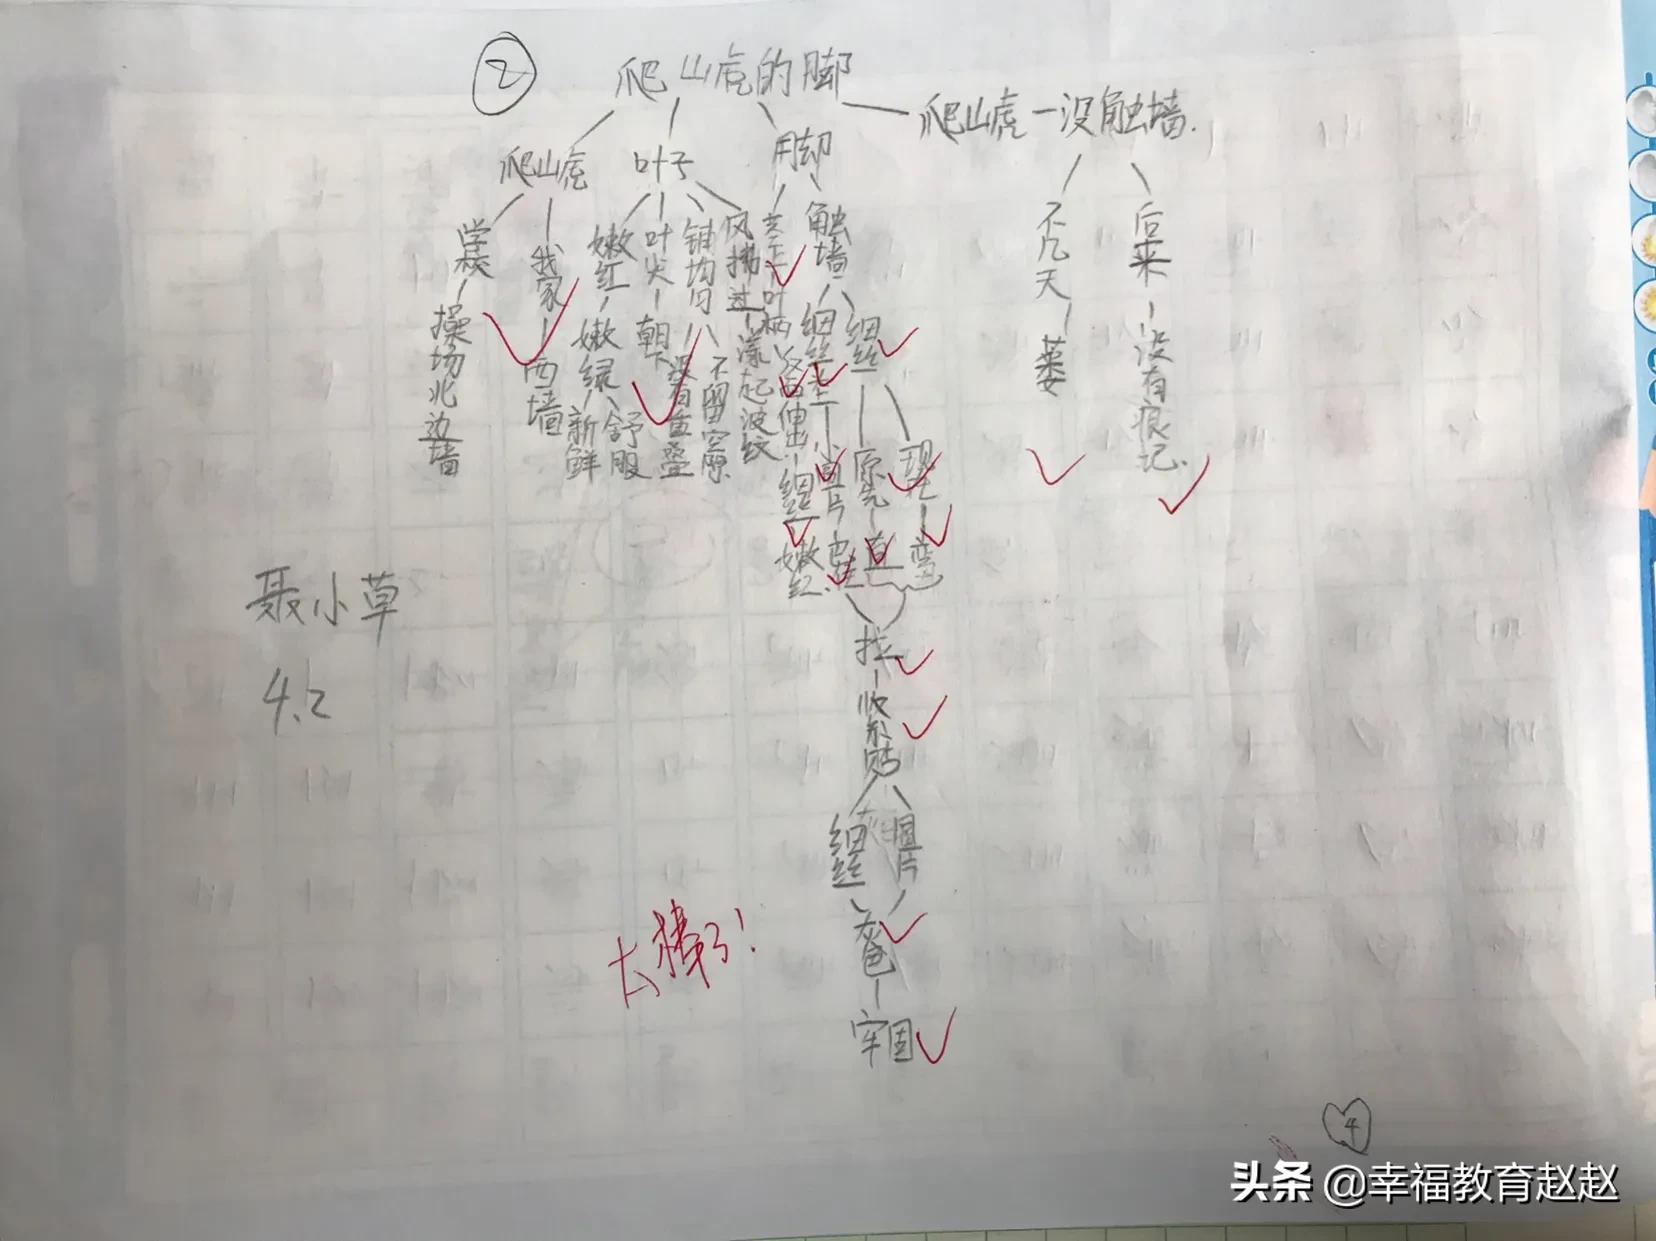 ② 爬山虎的脚
爬山虎一没触墙.
爬山虎 叶子 脚
学校
操场北边墙
我家
西墙
嫩红
嫩绿
新鲜
舒服
叶尖
朝下
铺均匀
没有重叠
不留空隙
风拂过
漾起波纹
茎上
叶柄
反面伸出
细丝
嫩红.
触墙
细丝
圆片
细丝
原先
直
现在
弯
不几天
萎
后来
没有痕记.
拉
紧贴
细丝
圆片
灰色
牢固
聂小草
4.2
太棒了!
4
头条 @幸福教育赵赵